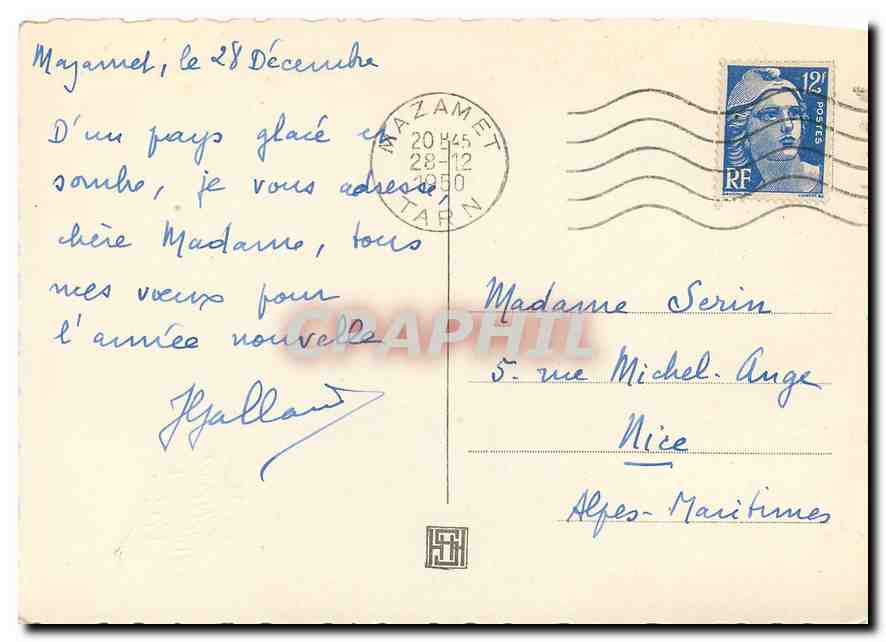 Mazamet, le 28 Décembre
D'un pays glacé et
sombre, je vous adresse,
chère Madame, tous
mes vœux pour
l'année nouvelle
MAZAMET
20 H45
28-12
1950
TARN
12F
POSTES
RF
Madame Serin
5. rue Michel-Ange
Nice
Alpes-Maritimes
CPAPHIL